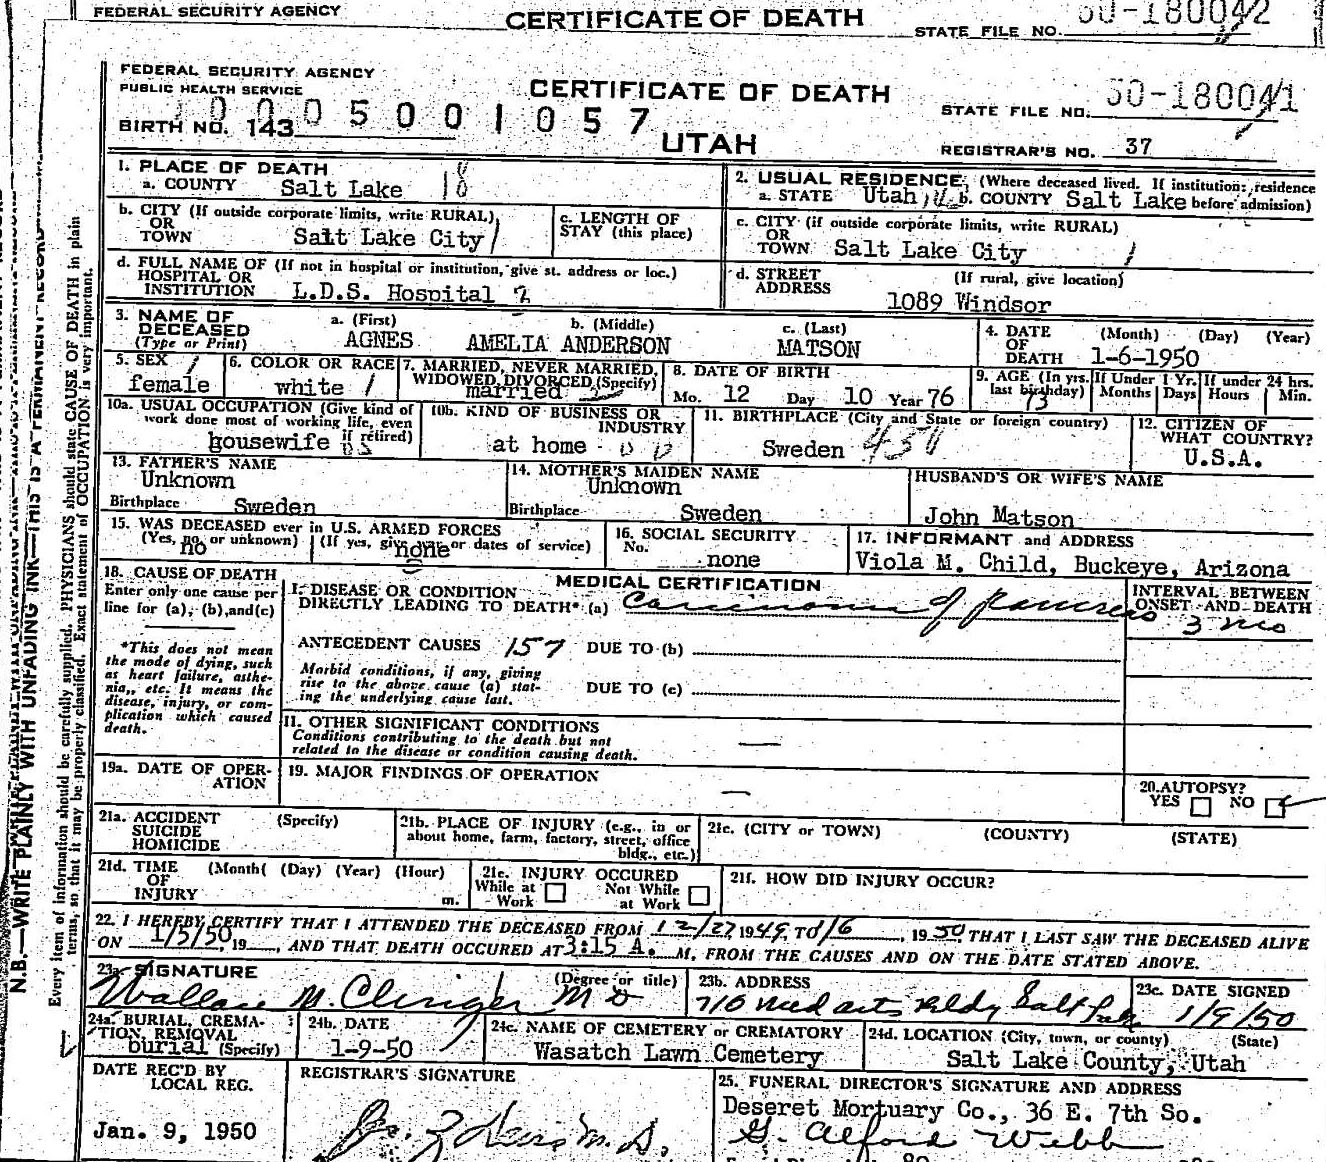 FEDERAL SECURITY AGENCY
CERTIFICATE OF DEATH
STATE FILE NO. 50-180042
FEDERAL SECURITY AGENCY
PUBLIC HEALTH SERVICE
CERTIFICATE OF DEATH
STATE FILE NO. 50-180041
0005001057
BIRTH NO. 143
UTAH
REGISTRAR'S NO. 37
1. PLACE OF DEATH
a. COUNTY Salt Lake 18
2. USUAL RESIDENCE, (Where deceased lived. If institution: residence
a. STATE Utah b. COUNTY Salt Lake before admission)
b. CITY (If outside corporate limits, write RURAL)
OR
TOWN Salt Lake City
c. LENGTH OF
STAY (this place)
c. CITY (if outside corporate limits, write RURAL)
OR
TOWN Salt Lake City
d. FULL NAME OF (If not in hospital or institution, give st. address or loc.)
HOSPITAL OR
INSTITUTION L.D.S. Hospital 2
d. STREET (If rural, give location)
ADDRESS
1089 Windsor
3. NAME OF a. (First) b. (Middle) c. (Last)
DECEASED
(Type or Print) AGNES AMELIA ANDERSON MATSON
4. DATE (Month) (Day) (Year)
OF
DEATH 1-6-1950
5. SEX
female
6. COLOR OR RACE
white
7. MARRIED, NEVER MARRIED,
WIDOWED, DIVORCED (Specify)
married
8. DATE OF BIRTH
Mo. 12 Day 10 Year 76
9. AGE (In yrs. last birthday) 73
If Under 1 Yr. Months Days
If under 24 hrs. Hours Min.
10a. USUAL OCCUPATION (Give kind of
work done most of working life, even
if retired)
housewife
10b. KIND OF BUSINESS OR
INDUSTRY
at home
11. BIRTHPLACE (City and State or foreign country)
Sweden
12. CITIZEN OF
WHAT COUNTRY?
U.S.A.
13. FATHER'S NAME
Unknown
Birthplace Sweden
14. MOTHER'S MAIDEN NAME
Unknown
Birthplace Sweden
HUSBAND'S OR WIFE'S NAME
John Matson
15. WAS DECEASED ever in U.S. ARMED FORCES
(Yes, no, or unknown) (If yes, give war or dates of service)
no none
16. SOCIAL SECURITY
No.
none
17. INFORMANT and ADDRESS
Viola M. Child, Buckeye, Arizona
18. CAUSE OF DEATH
Enter only one cause per
line for (a), (b), and (c)
*This does not mean
the mode of dying, such
as heart failure, asthe-
nia, etc. It means the
disease, injury, or com-
plication which caused
death.
MEDICAL CERTIFICATION
I. DISEASE OR CONDITION
DIRECTLY LEADING TO DEATH* (a) Carcinoma of pancreas
INTERVAL BETWEEN
ONSET AND DEATH
3 mo
ANTECEDENT CAUSES 157 DUE TO (b)
Morbid conditions, if any, giving
rise to the above cause (a) stat-
ing the underlying cause last.
DUE TO (c)
II. OTHER SIGNIFICANT CONDITIONS
Conditions contributing to the death but not
related to the disease or condition causing death.
19a. DATE OF OPER-
ATION
19. MAJOR FINDINGS OF OPERATION
20. AUTOPSY?
YES NO
21a. ACCIDENT (Specify)
SUICIDE
HOMICIDE
21b. PLACE OF INJURY (e.g., in or
about home, farm, factory, street, office
bldg., etc.)
21c. (CITY or TOWN) (COUNTY) (STATE)
21d. TIME (Month( (Day) (Year) (Hour)
OF
INJURY m.
21e. INJURY OCCURED
While at Work Not While at Work
21f. HOW DID INJURY OCCUR?
22. I HEREBY CERTIFY THAT I ATTENDED THE DECEASED FROM 12/27 1949, TO 1/6, 1950, THAT I LAST SAW THE DECEASED ALIVE
ON 1/5/50, 19, AND THAT DEATH OCCURED AT 3:15 A. M, FROM THE CAUSES AND ON THE DATE STATED ABOVE.
23a. SIGNATURE (Degree or title)
Wallace M. Clinger M D
23b. ADDRESS
710 Med arts Bldg Salt Lake
23c. DATE SIGNED
1/9/50
24a. BURIAL, CREMA-
TION, REMOVAL
burial (Specify)
24b. DATE
1-9-50
24c. NAME OF CEMETERY or CREMATORY
Wasatch Lawn Cemetery
24d. LOCATION (City, town, or county) (State)
Salt Lake County, Utah
DATE REC'D BY
LOCAL REG.
Jan. 9, 1950
REGISTRAR'S SIGNATURE
M.D.
25. FUNERAL DIRECTOR'S SIGNATURE AND ADDRESS
Deseret Mortuary Co., 36 E. 7th So.
G. Alford Webb
N.B.—WRITE PLAINLY WITH UNFADING INK—THIS IS A PERMANENT RECORD
Every item of information should be carefully supplied. PHYSICIANS should state CAUSE OF DEATH in plain
terms, so that it may be properly classified. Exact statement of OCCUPATION is very important.